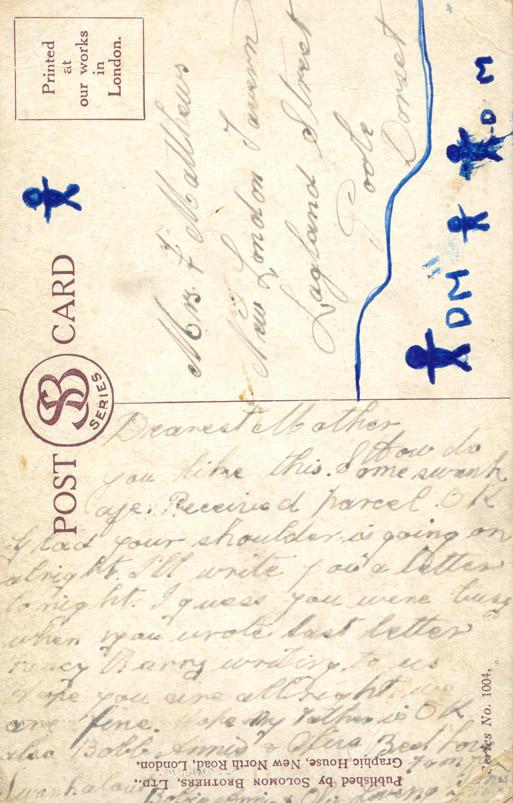 POST CARD
SB
SERIES
Printed
at
our works
in
London.
Mrs F Matthews
New London Tavern
Lagland Street
Poole
Dorset
DM
DM
Dearest Mother
How do
you like this. Some swank
age. Received parcel OK
Glad your shoulder is going on
alright. I'll write you a letter
tonight. I guess you were busy
when you wrote last letter
Fancy Harry writing to us
Hope you are allright, we
are fine. Hope my Father is OK
also
Series No. 1004.
Published by SOLOMON BROTHERS, LTD.,
Graphic House, New North Road, London.